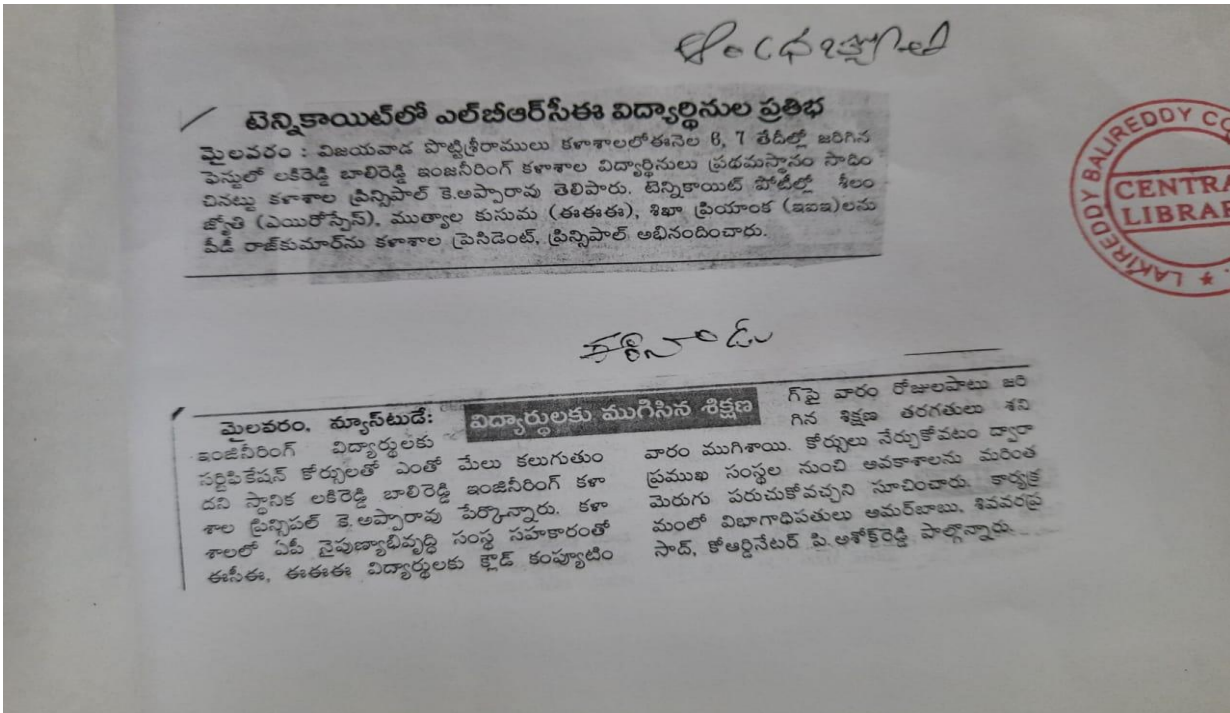 ఆంధ్రజ్యోతి
టెన్నికాయిట్‌లో ఎల్‌బీఆర్‌సీఈ విద్యార్థినుల ప్రతిభ
మైలవరం : విజయవాడ పొట్టిశ్రీరాములు కళాశాలలోఈనెల 6, 7 తేదీల్లో జరిగిన
ఫెస్టులో లకిరెడ్డి బాలిరెడ్డి ఇంజనీరింగ్ కళాశాల విద్యార్థినులు ప్రథమస్థానం సాదిం
చినట్టు కళాశాల ప్రిన్సిపాల్ కె.అప్పారావు తెలిపారు. టెన్నికాయిట్ పోటీల్లో శీలం
జ్యోతి (ఎయిరోస్పేస్), ముత్యాల కుసుమ (ఈఈఈ), శిఖా ప్రియాంక (ఇఐఇ)లను
పీడీ రాజ్‌కుమార్‌ను కళాశాల ప్రెసిడెంట్, ప్రిన్సిపాల్ అభినందించారు.
LAKIREDDY BALIREDDY CO
CENTRA
LIBRAR
విద్యార్థులకు ముగిసిన శిక్షణ
మైలవరం, న్యూస్‌టుడే:
ఇంజినీరింగ్ విద్యార్థులకు
సర్టిఫికేషన్ కోర్సులతో ఎంతో మేలు కలుగుతుం
దని స్థానిక లకిరెడ్డి బాలిరెడ్డి ఇంజినీరింగ్ కళా
శాల ప్రిన్సిపల్ కె.అప్పారావు పేర్కొన్నారు. కళా
శాలలో ఏపీ నైపుణ్యాభివృద్ధి సంస్థ సహకారంతో
ఈసీఈ, ఈఈఈ విద్యార్థులకు క్లౌడ్ కంప్యూటిం
గ్‌పై వారం రోజులపాటు జరి
గిన శిక్షణ తరగతులు శని
వారం ముగిశాయి. కోర్సులు నేర్చుకోవటం ద్వారా
ప్రముఖ సంస్థల నుంచి అవకాశాలను మరింత
మెరుగు పరుచుకోవచ్చని సూచించారు. కార్యక్ర
మంలో విభాగాధిపతులు అమర్‌బాబు, శివవరప్ర
సాద్, కోఆర్డినేటర్ పి.అశోక్‌రెడ్డి పాల్గొన్నారు.